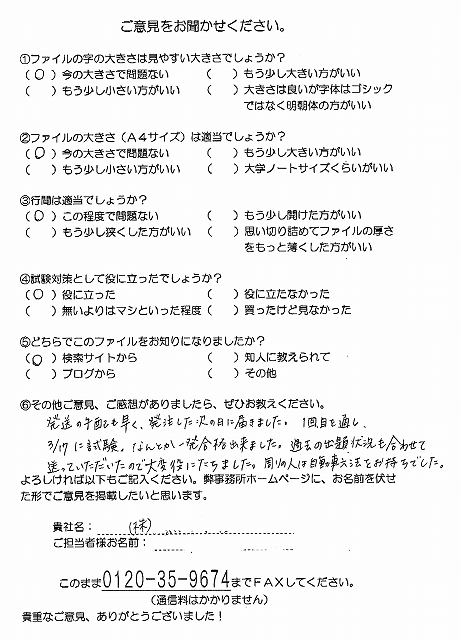 ご意見をお聞かせください。
①ファイルの字の大きさは見やすい大きさでしょうか？
（ ○ ）今の大きさで問題ない （ ）もう少し大きい方がいい
（ ）もう少し小さい方がいい （ ）大きさは良いが字体はゴシック
ではなく明朝体の方がいい
②ファイルの大きさ（Ａ４サイズ）は適当でしょうか？
（ ○ ）今の大きさで問題ない （ ）もう少し大きい方がいい
（ ）もう少し小さい方がいい （ ）大学ノートサイズくらいがいい
③行間は適当でしょうか？
（ ○ ）この程度で問題ない （ ）もう少し開けた方がいい
（ ）もう少し狭くした方がいい （ ）思い切り詰めてファイルの厚さ
をもっと薄くした方がいい
④試験対策として役に立ったでしょうか？
（ ○ ）役に立った （ ）役に立たなかった
（ ）無いよりはマシといった程度 （ ）買ったけど見なかった
⑤どちらでこのファイルをお知りになりましたか？
（ ○ ）検索サイトから （ ）知人に教えられて
（ ）ブログから （ ）その他
⑥その他ご意見、ご感想がありましたら、ぜひお教えください。
発送の手配も早く、発注した次の日に届きました。1回目を通し、
3/17に試験。なんとか一発合格出来ました。過去の出題状況も合わせて
送っていただいたので大変役にたちました。周りの人は自動車六法をお持ちでした。
よろしければ以下もご記入ください。弊事務所ホームページに、お名前を伏せ
た形でご意見を掲載したいと思います。
貴社名： （株）
ご担当者様お名前：
このまま0120-35-9674までＦＡＸしてください。
（通信料はかかりません）
貴重なご意見、ありがとうございました！